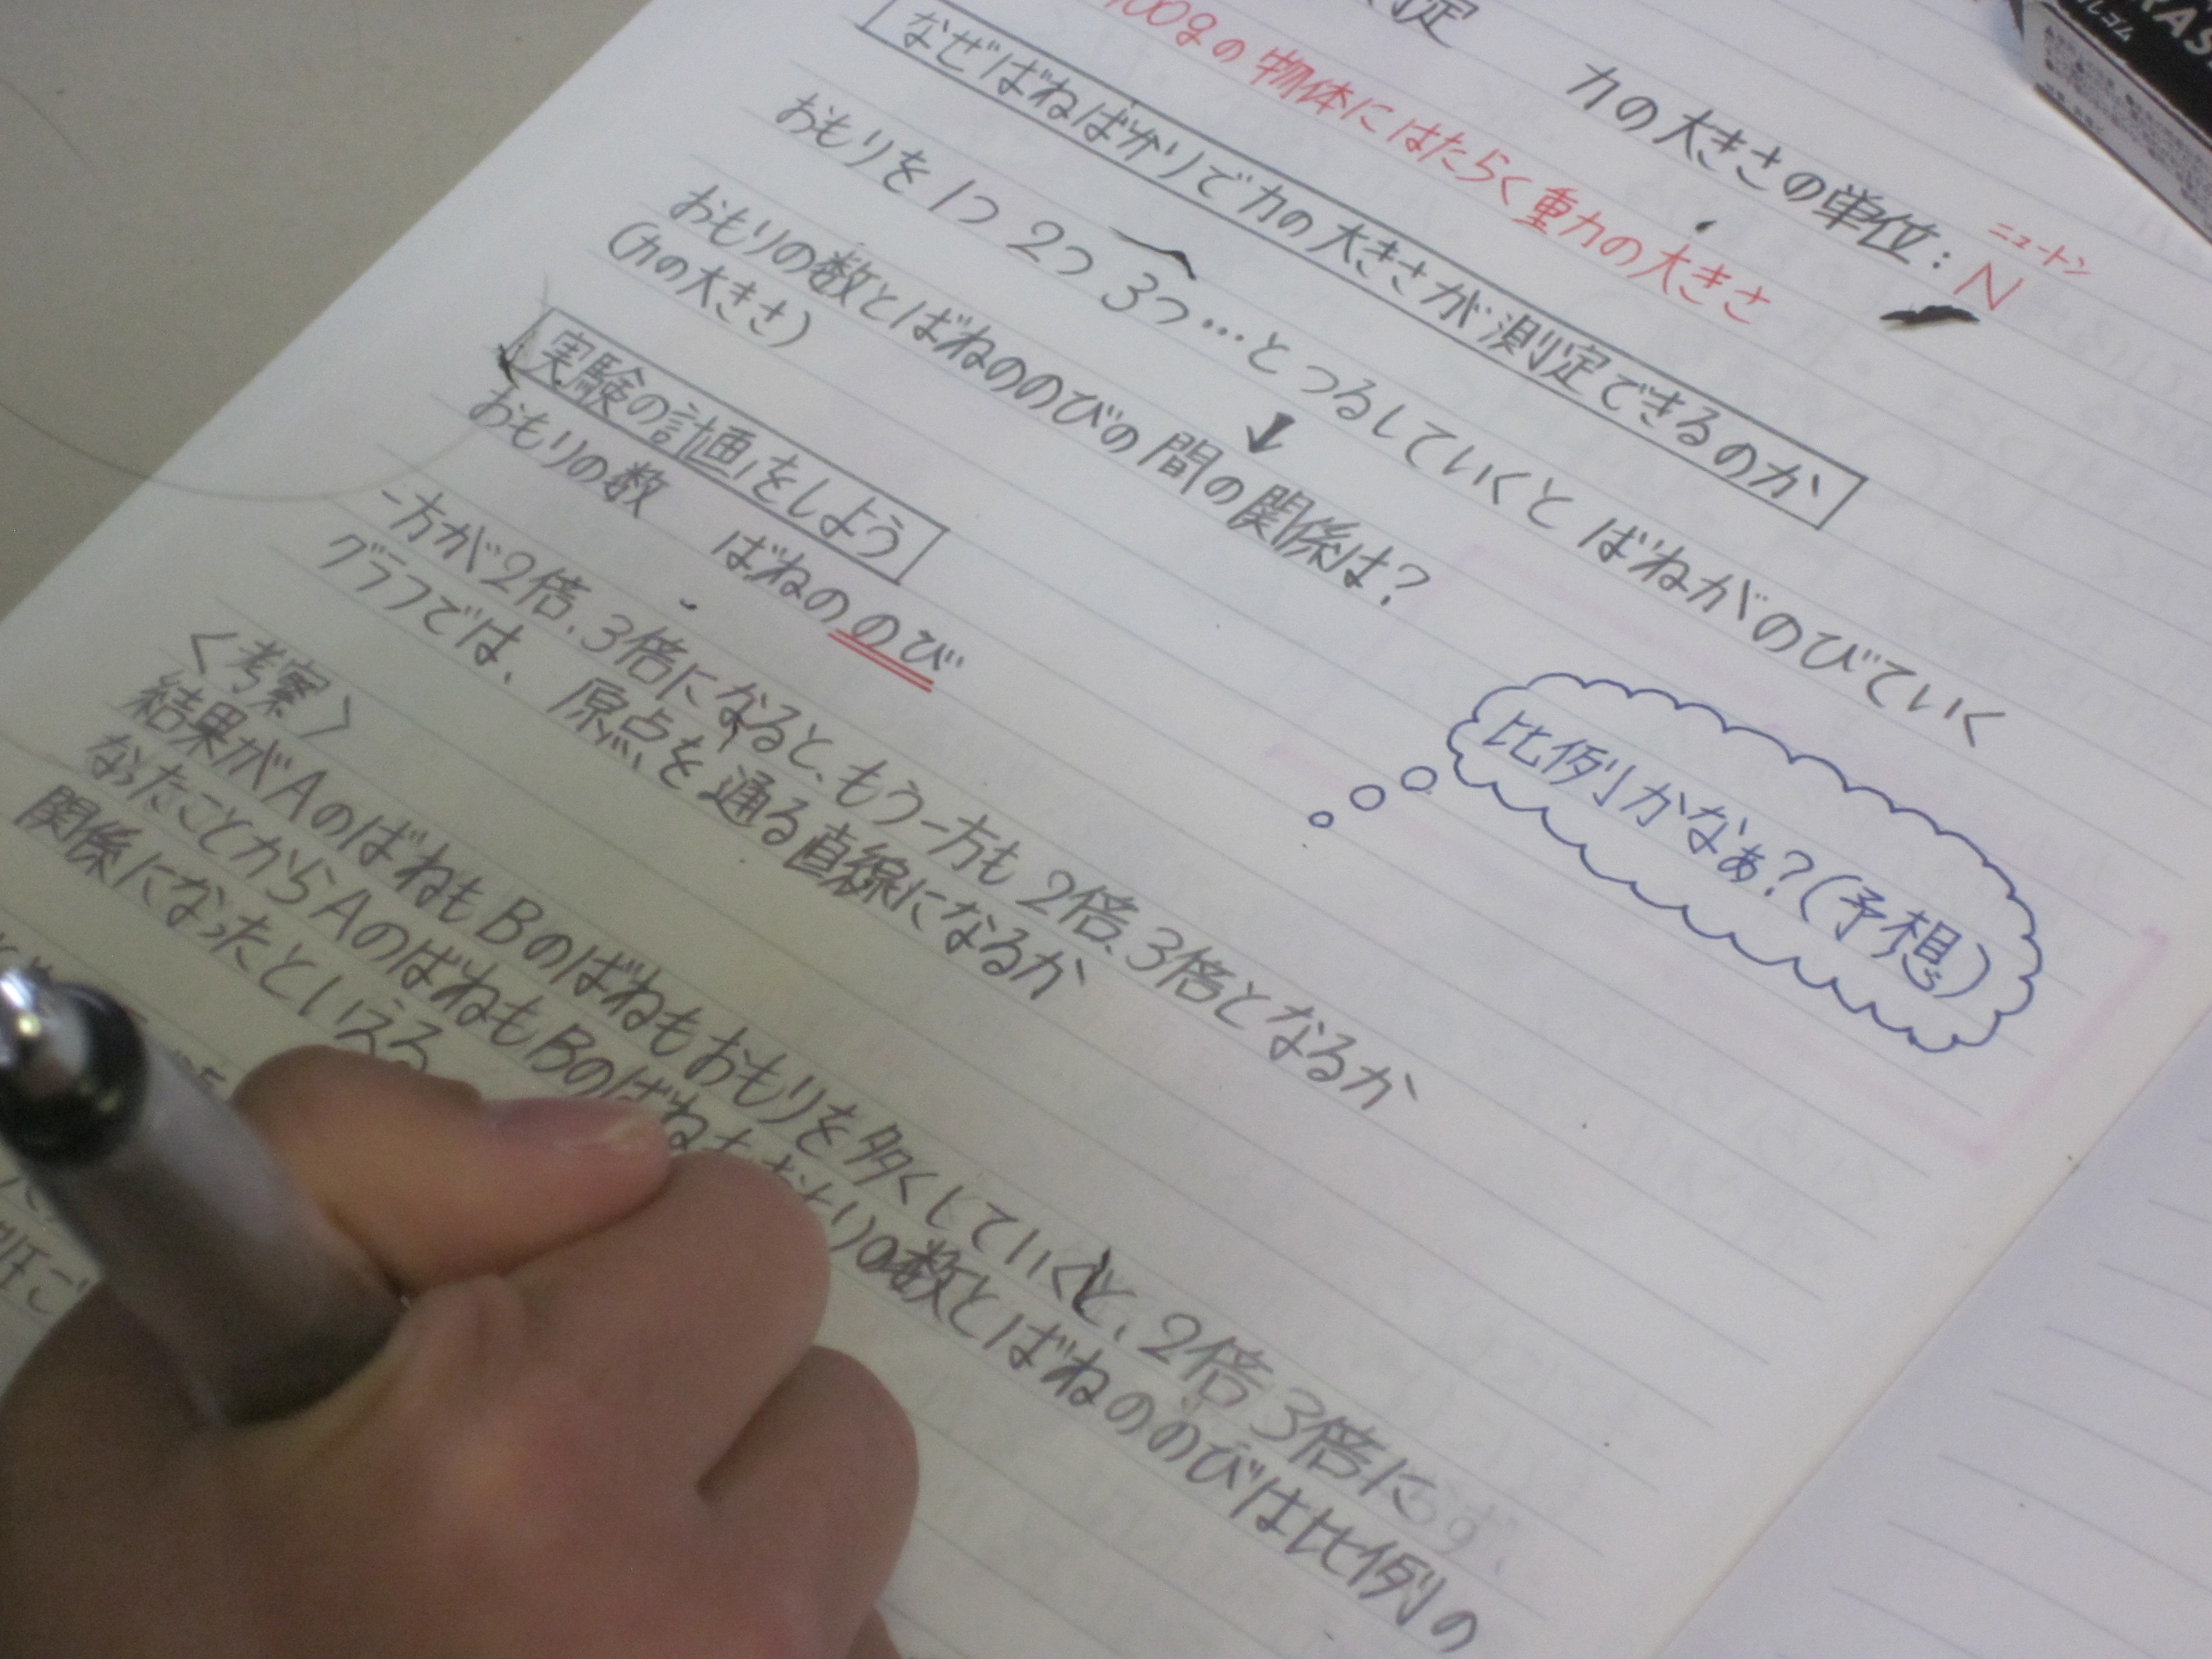 力の大きさの単位：N
ニュートン
100gの物体にはたらく重力の大きさ
なぜばねばかりで力の大きさが測定できるのか
おもりを1つ 2つ 3つ…とつるしていくとばねがのびていく
おもりの数とばねののびの間の関係は？
(力の大きさ)
比例かなぁ？(予想)
実験の計画をしよう
おもりの数 ばねののび
一方が2倍、3倍になると、もう一方も2倍、3倍となるか
グラフでは、原点を通る直線になるか
〈考察〉
結果がAのばねもBのばねもおもりを多くしていくと、2倍3倍に
なったことからAのばねもBのばねもおもりの数とばねののびは比例の
関係になったといえる